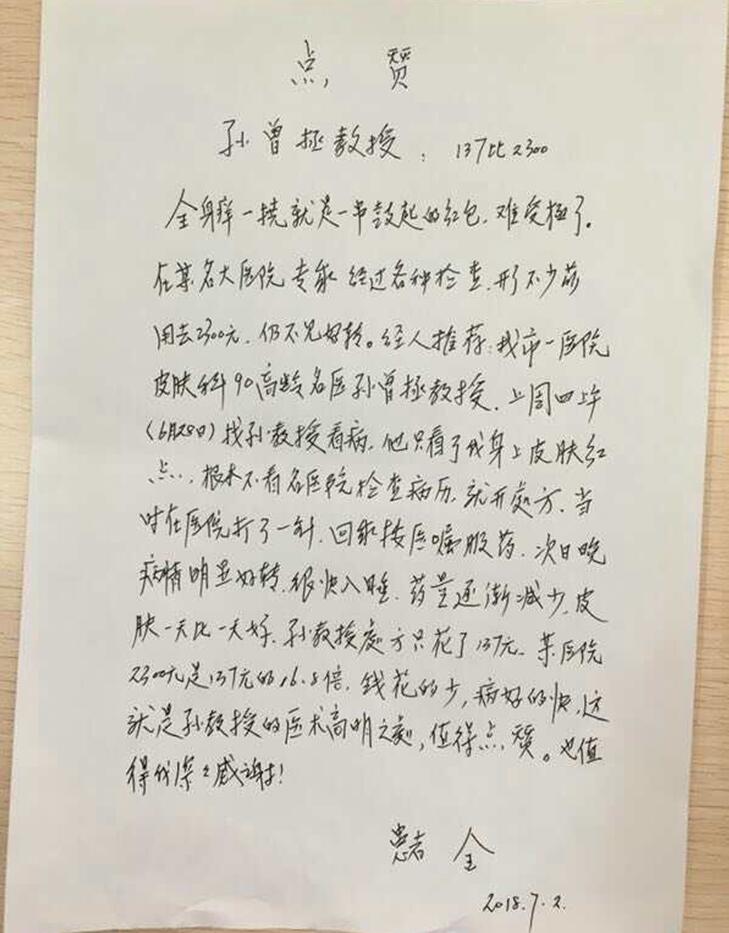 点 赞
孙曾拯教授：137比2300
全身痒一挠就是一串鼓起的红包，难受极了。
在某名大医院专家经过各种检查，开不少药
用去2300元，仍不见好转。经人推荐：我市一医院
皮肤科90高龄名医孙曾拯教授，上周四上午
（6月28日）找孙教授看病，他只看了我身上皮肤红
点，根本不看名医院检查病历，就开处方，当
时在医院打了一针，回家按医嘱服药，次日晚
病情明显好转，很快入睡，药量逐渐减少，皮
肤一天比一天好，孙教授处方只花了137元，某医院
2300元是137元的16.8倍，钱花的少，病好的快，这
就是孙教授的医术高明之处，值得点赞。也值
得我深々感谢！
患者 全
2018.7.2.